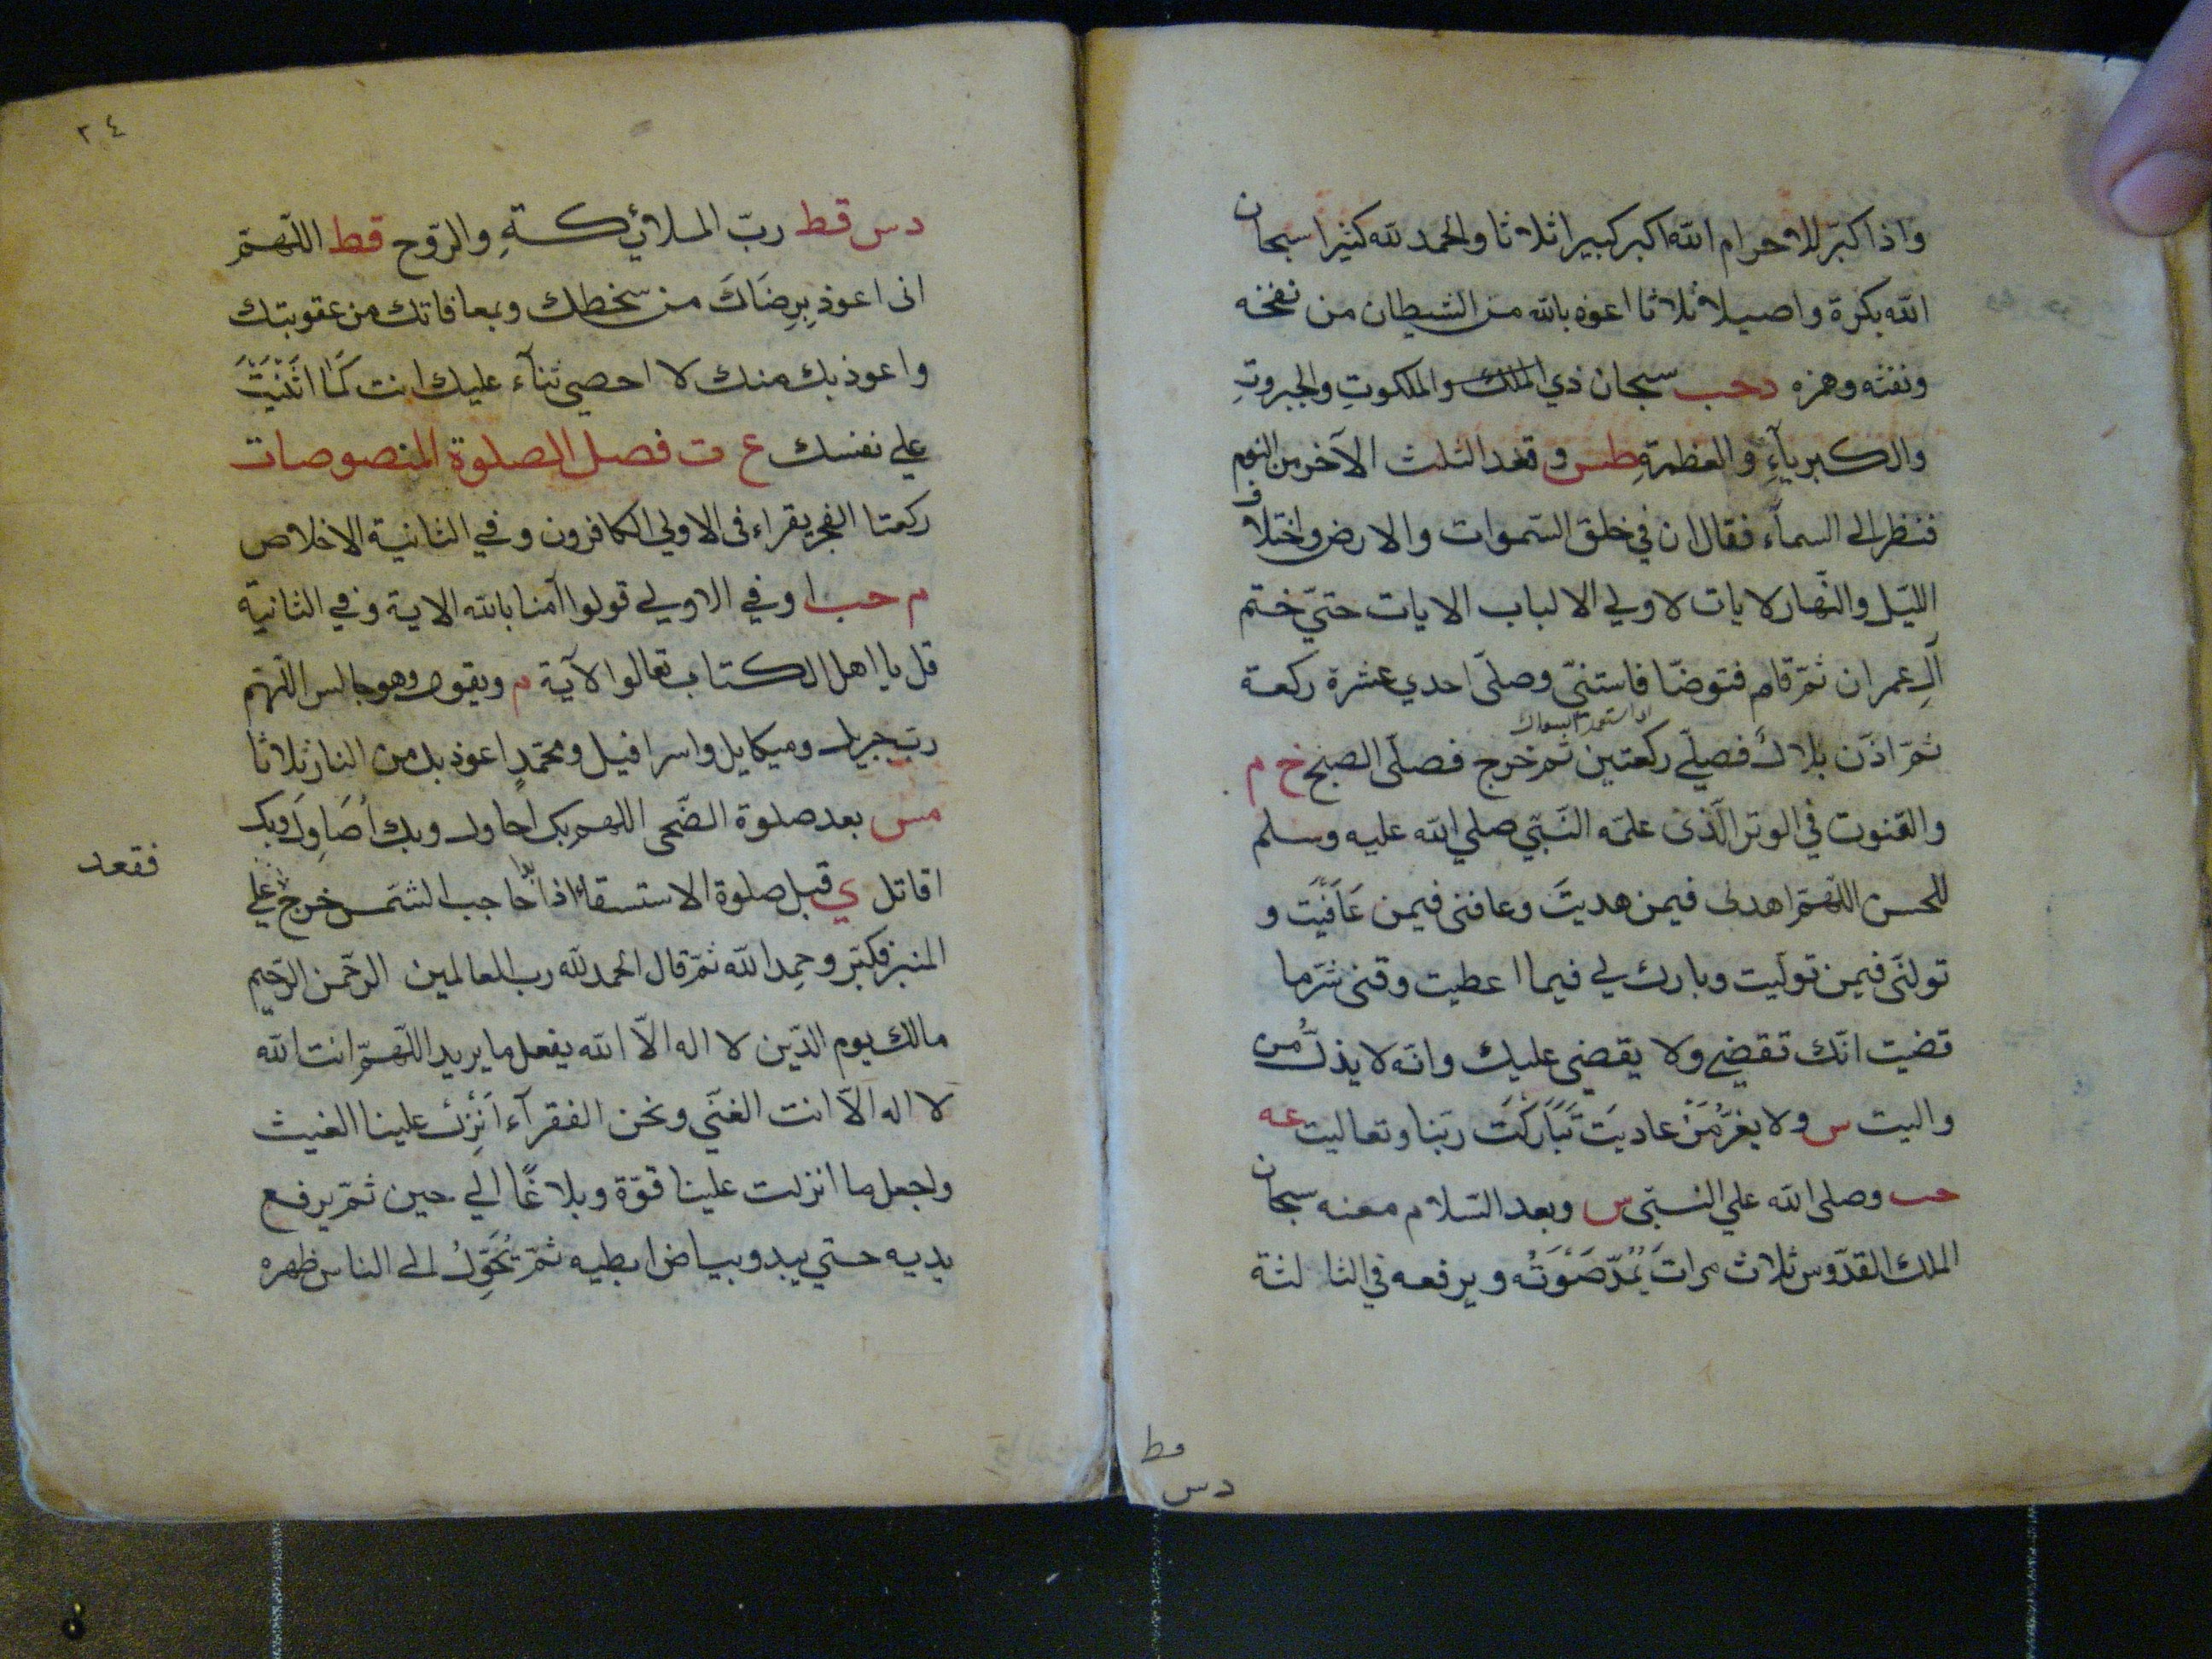 واذا كبّر للاحرام الله اكبر كبيرا ثلاثا والحمد لله كثيرا سبحان
الله بكرة واصيلا ثلاثا اعوذ بالله من الشيطان من نفخه
ونفثه وهمزه دحب سبحان ذي الملك والملكوتِ والجبروتِ
والكبريآءِ والعظمةِ طس وقعد الثلث الآخر من النوم
فنظر الى السمآء فقال ان في خلق السّموات والارض واختلاف
الليّل والنّهار لايات لاولي الالباب الايات حتيّ ختم
آلِ عمران ثمّ قام فتوضّا فاستنّ وصلّى احدي عشرة ركعة
ثمّ اذّن بلالٌ فصلّي ركعتين ثم خرج فصلّى الصبح خ م
والقنوت في الوتر الّذى علمّه النّبّي صلي الله عليه وسلم
للحسن اللّهمّ اهدنى فيمن هديتَ وعافنى فيمن عَافَيْتَ و
تولنّى فيمن تولّيت وبارك لي فيما اعطيت وقنى شرّ ما
قضيت انّك تقضي ولا يقضى عليك وانّه لا يذلُّ من
واليت س ولا يعزُّ مَنْ عاديتَ تَبَارَكْتَ ربّنا وتعاليت عه
حب وصلى الله علي النّبّى س وبعد السّلام منه سبحان
الملك القدّوس ثلاث مرات يَمُدّ صَوْتَهُ ويرفعه في الثالثة
قط
دس
٢٤
دس قط ربّ الملائكةِ والرّوح قط اللّهمّ
انى اعوذ بِرِضَاكَ من سخطك وبمعافاتك من عقوبتك
واعوذ بك منك لا احصي ثنآء عليك انت كَمَا اثْنَيْتَ
علي نفسك ع ت فصل الصلوة المنصوصات
ركعتا الفجر يقراء فى الاولي الكافرون وفي الثانية الاخلاص
م حب ا وفي الاولي قولوا آمنا بالله الاية وفي الثانية
قل يا اهل الكتاب تعالوا الآية م ويقول وهو جالس اللّهمّ
ربّ جبريل وميكايل واسرافيل ومحمّدٍ اعوذ بك من النار ثلاثا
مس بعد صلوة الضّحى اللهم بك احاول وبك اُصَاوِلُ وبك
اقاتل ي قبل صلوة الاستسقاء اذا بدا حاجب الشمس خرج علي
فقعد
المنبر فكبّر وحمِد الله ثمّ قال الحمد لله رب العالمين الرحّمن الرحّيم
مالك يوم الدّين لا اله الاّ الله يفعل ما يريد اللّهمّ انت الله
لا اله الاّ انت الغنّي ونحن الفقرآء اَنْزِلْ علينا الغيث
واجعل ما انزلت علينا قوّة وبلاغًا الي حين ثمّ يرفع
يديه حتي يبدو بياض ابطيه ثمّ يُحَوِّلُ الى الناس ظهره